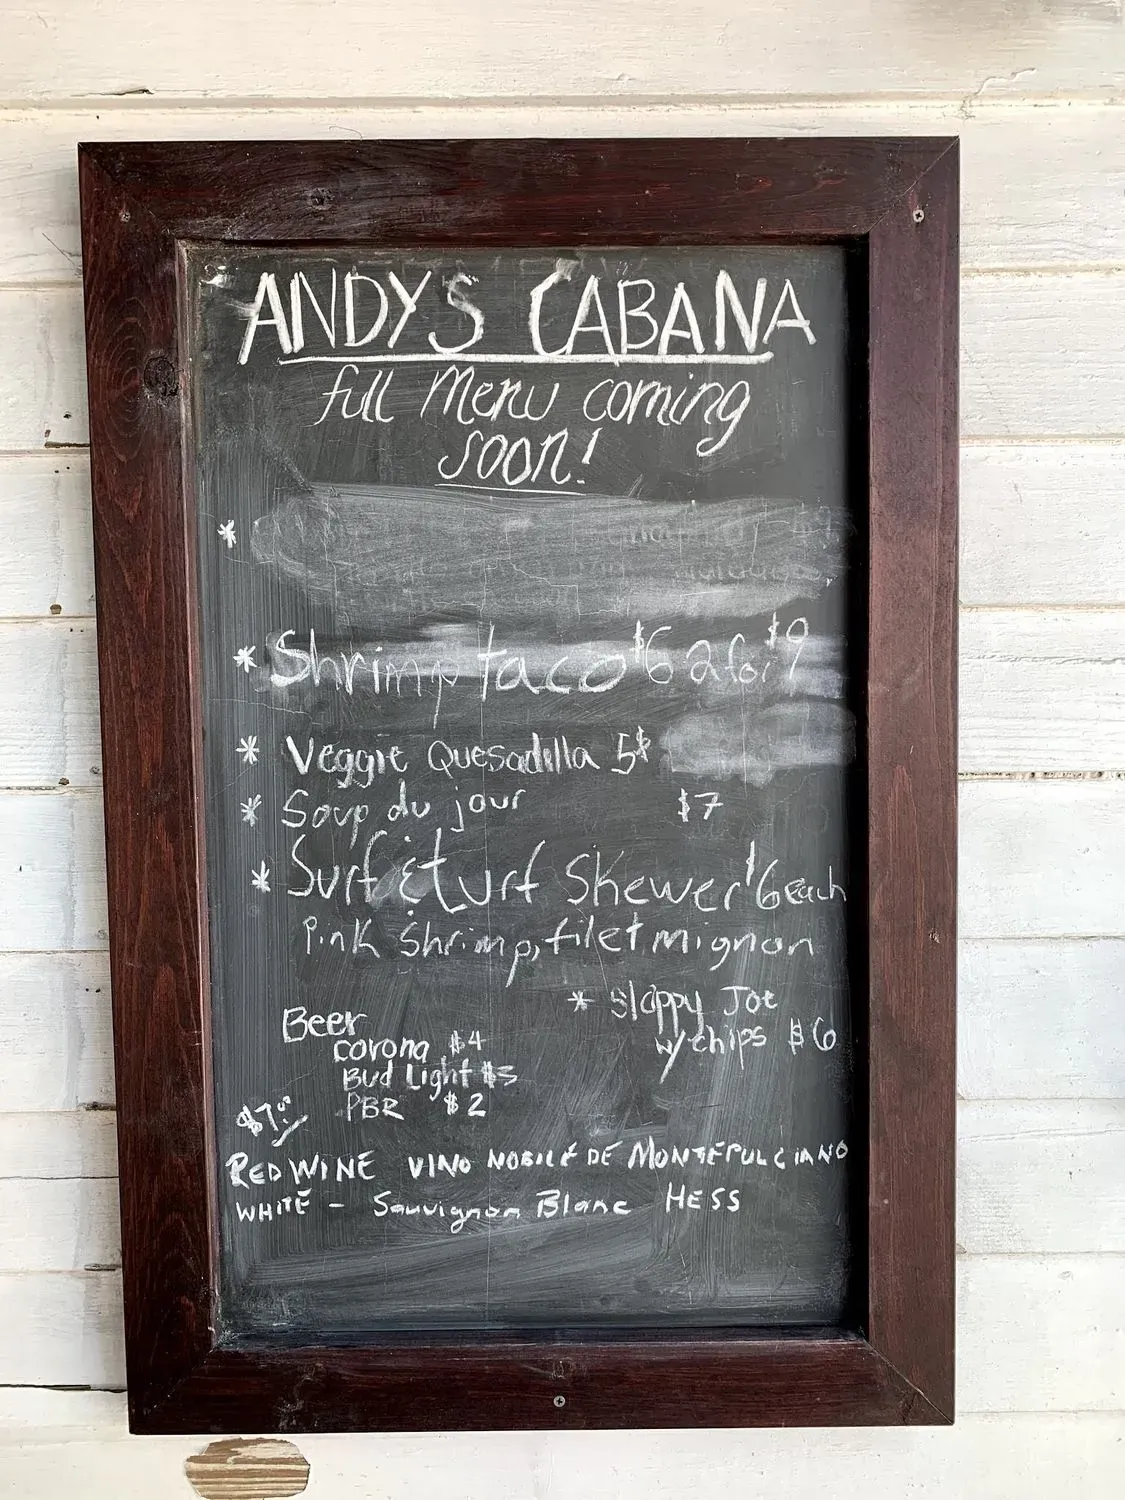 ANDYS CABANA
full Menu coming
soon!
*
* Shrimp taco $6 2 for $9
* Veggie Quesadilla 5$
* Soup du jour $7
* Surf & turf Skewer $6 each
Pink Shrimp, filet mignon
* Sloppy Joe
w/chips $6
Beer
corona $4
Bud Light $3
PBR $2
$7.00
RED WINE VINO NOBILE DE MONTEPULCIANO
WHITE - Sauvignon Blanc HESS